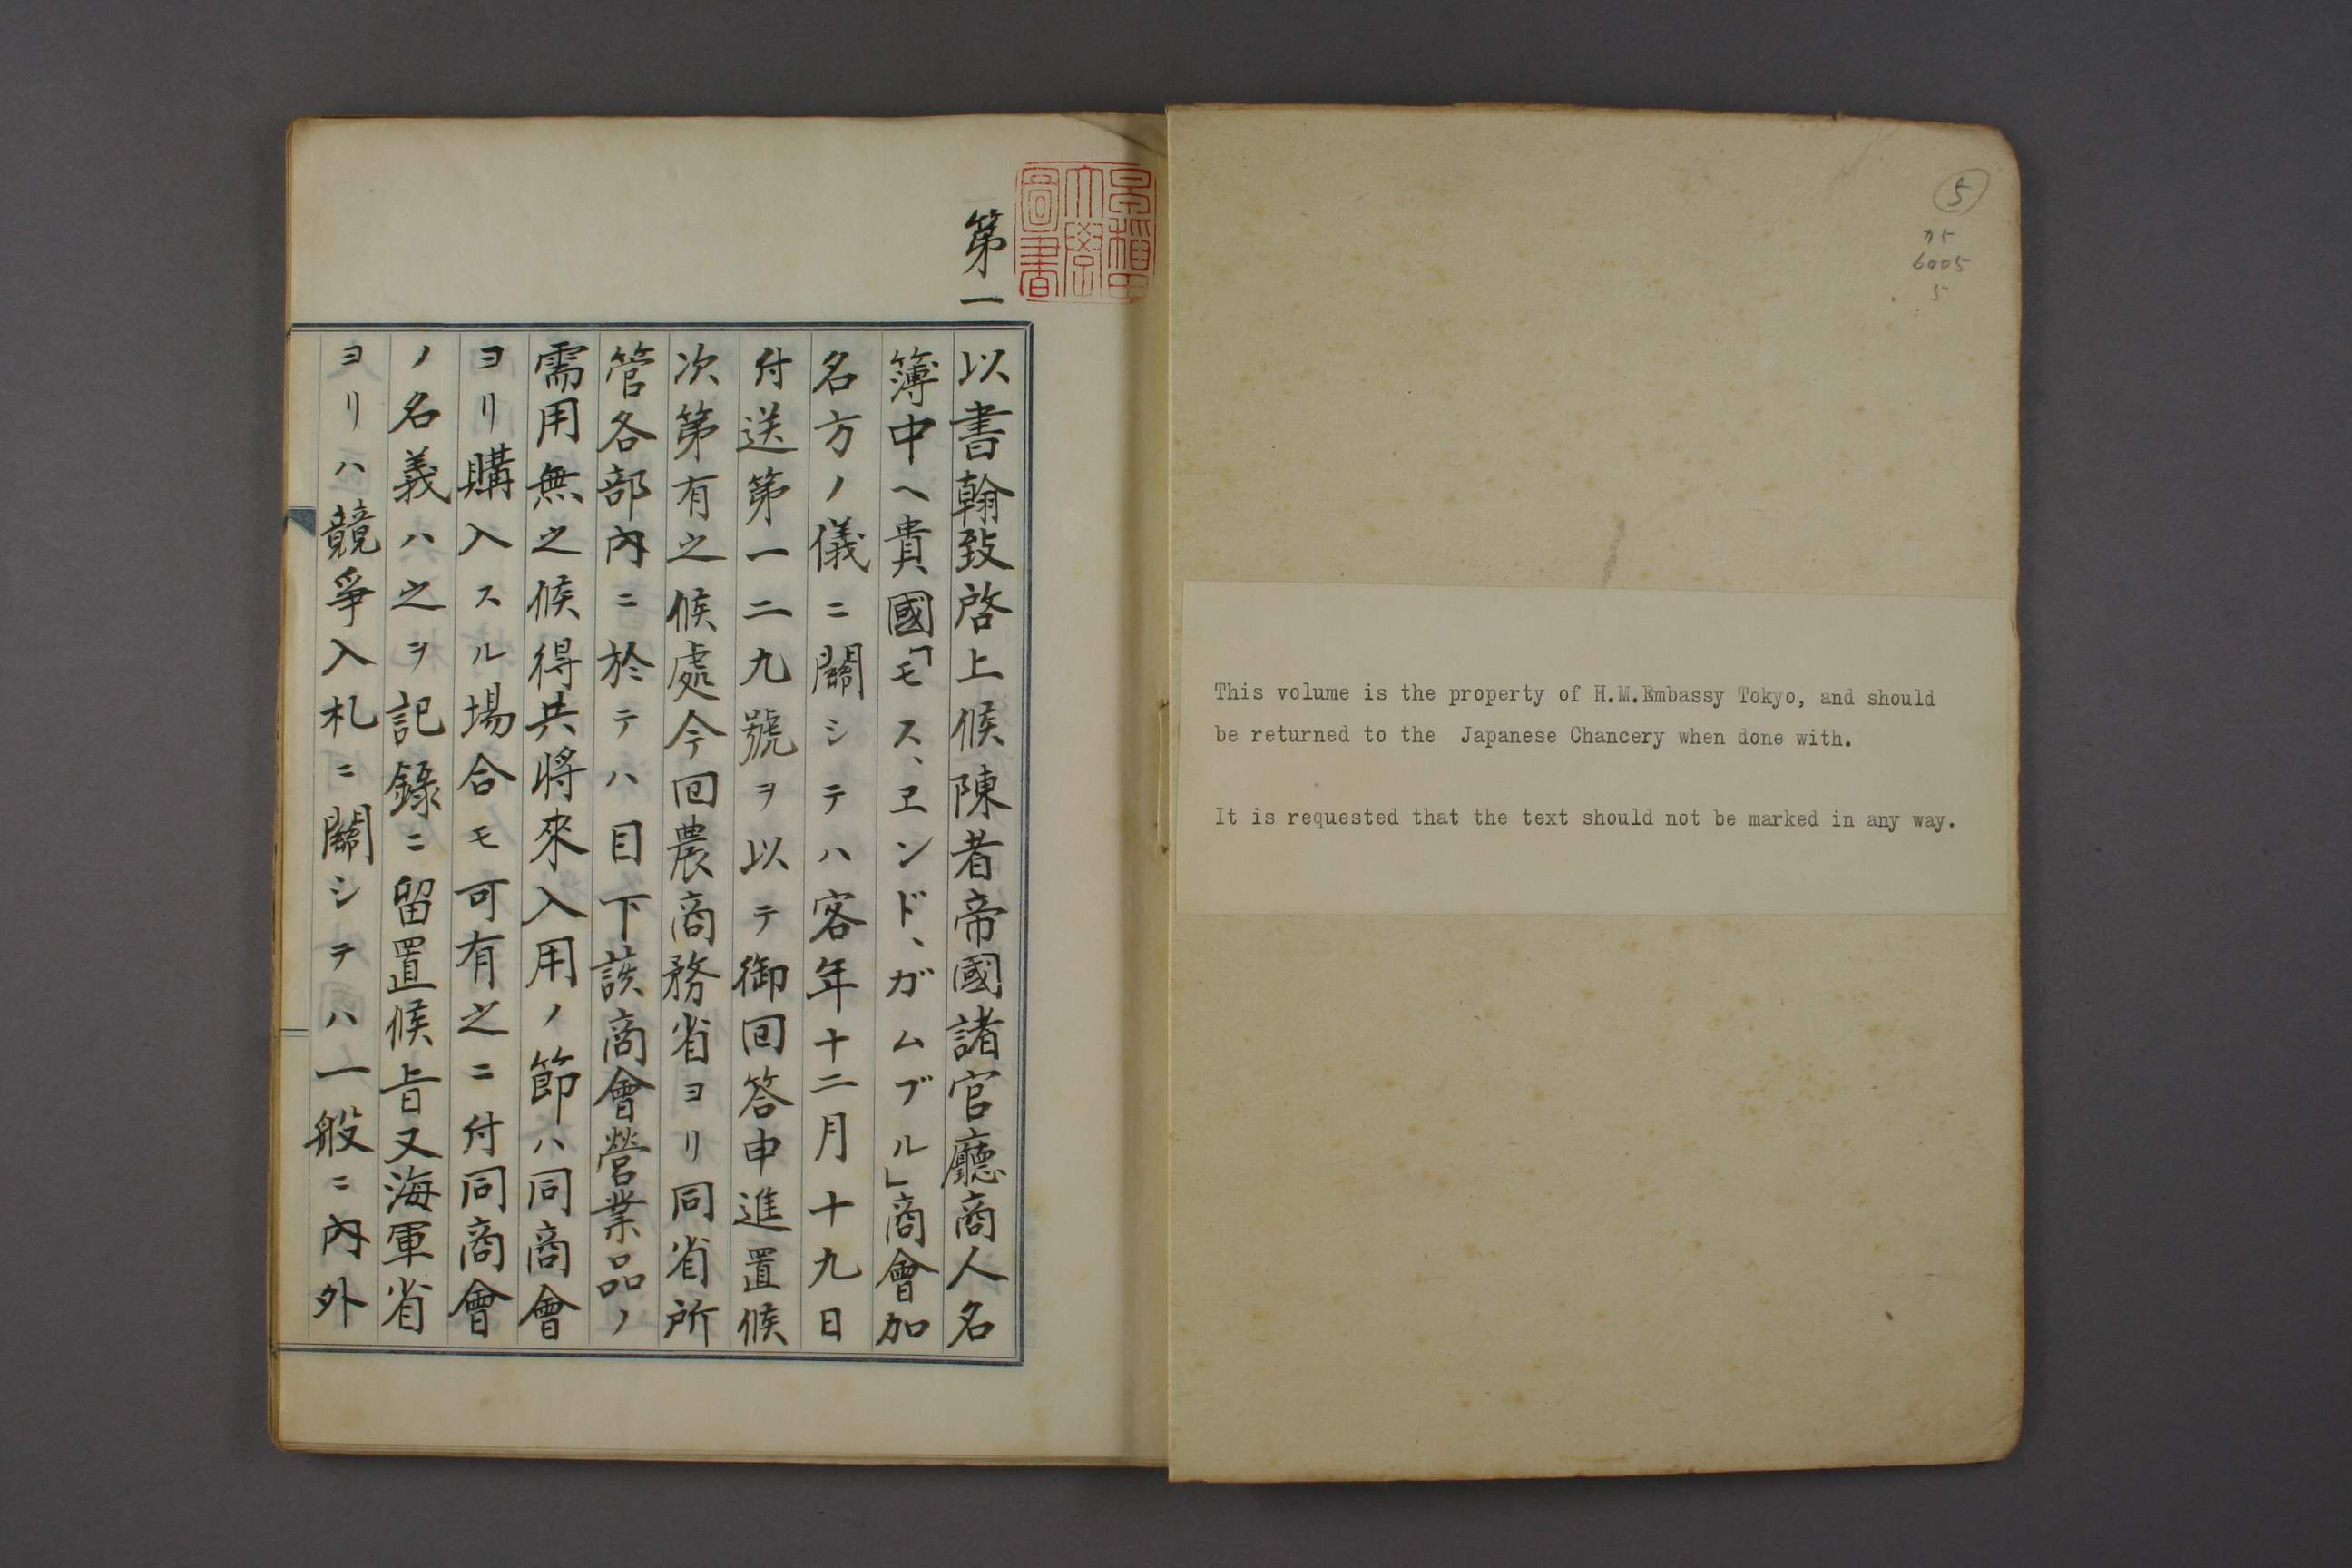 5
カ5
6005
5
This volume is the property of H.M.Embassy Tokyo, and should
be returned to the Japanese Chancery when done with.
It is requested that the text should not be marked in any way.
早稲田
大學
圖書
第一
以書翰致啓上候陳者帝國諸官廳商人名
簿中ヘ貴國「モス、ヱンド、ガムブル」商會加
名方ノ儀ニ關シテハ客年十二月十九日
付送第一二九號ヲ以テ御回答申進置候
次第有之候處今回農商務省ヨリ同省所
管各部內ニ於テハ目下該商會營業品ノ
需用無之候得共將來入用ノ節ハ同商會
ヨリ購入スル場合モ可有之ニ付同商會
ノ名義ハ之ヲ記錄ニ留置候旨又海軍省
ヨリハ競爭入札ニ關シテハ一般ニ內外